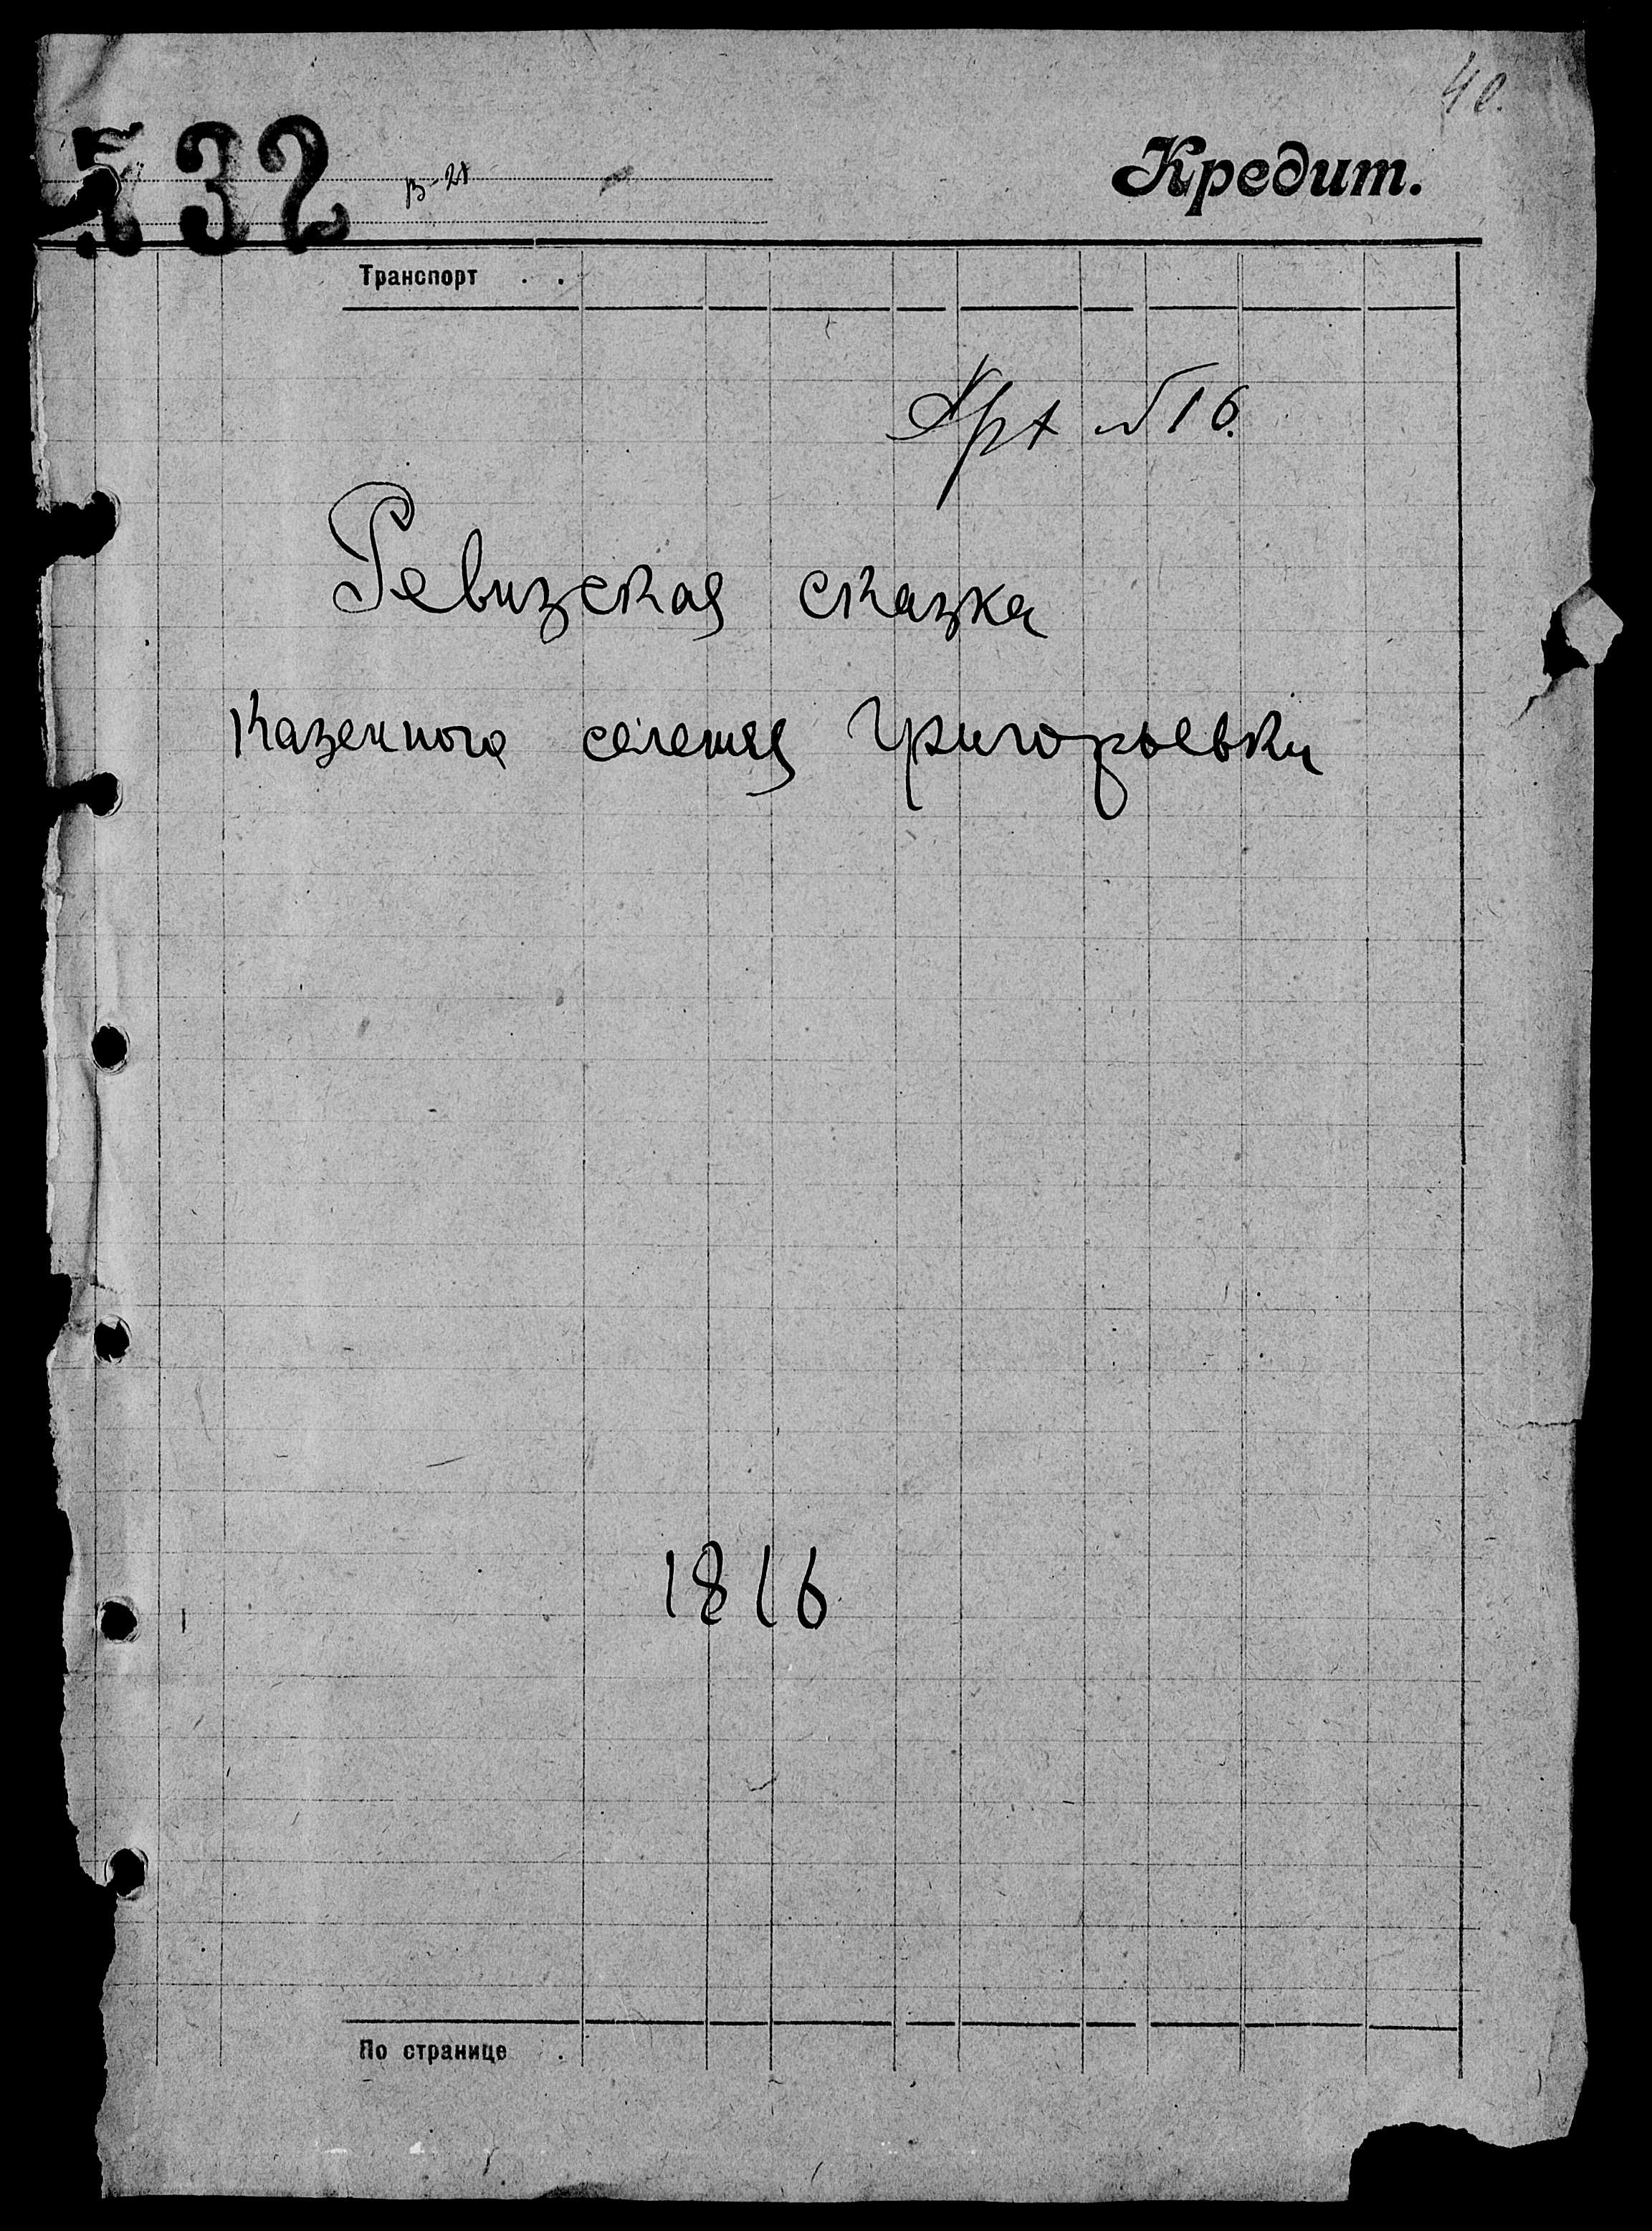 40.
532
В-21
Кредит.
Транспорт . .
Арх №16.
Ревизская сказка
казенного селения Григорьевки
1816
По странице .